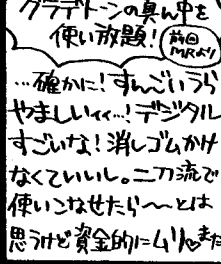 グラデトーンの真ん中を
使い放題!
前回
MRより
…確かに!すんごいうら
やましいィィ…!デジタル
すごいな!消しゴムかけ
なくていいし。二刀流で
使いこなせたら〜〜とは
思うけど資金的にムリ♡また